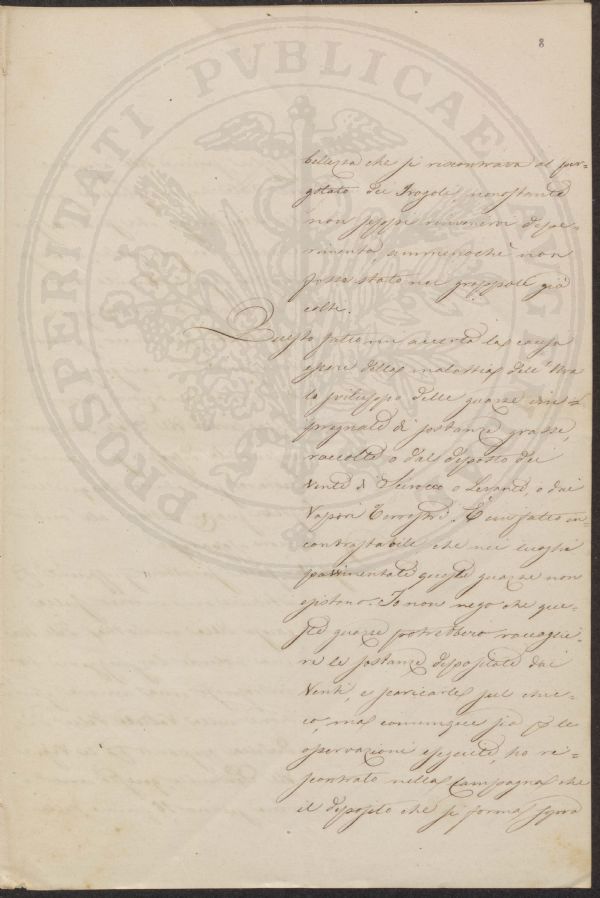 8
PROSPERITATI PVBLICAE
bellezza che si riscontrava al per=
golato dei Trogoli, nonostante
non seppi rinvenirvi
ammenochè non
fosse stato nei grappoli già
colti.
Questo fatto mi accerta la causa
essere della malattia dell'Uva
lo sviluppo delle guazze im=
pregnate di sostanze grasse,
raccolte o dal deposito dei
Venti di Scirocco o Levante, o dai
Vapori Terrestri. È un fatto in=
contrastabile che nei luoghi
pavimentati queste guazze non
esistono. Io non nego che que=
ste guazze potrebbero raccoglie=
re le sostanze depositate dai
Venti, e scaricarle sul chic=
co, ma comunque sia p le
osservazioni eseguite, ho ri=
scontrato nella Campagna che
il deposito che si forma sopra